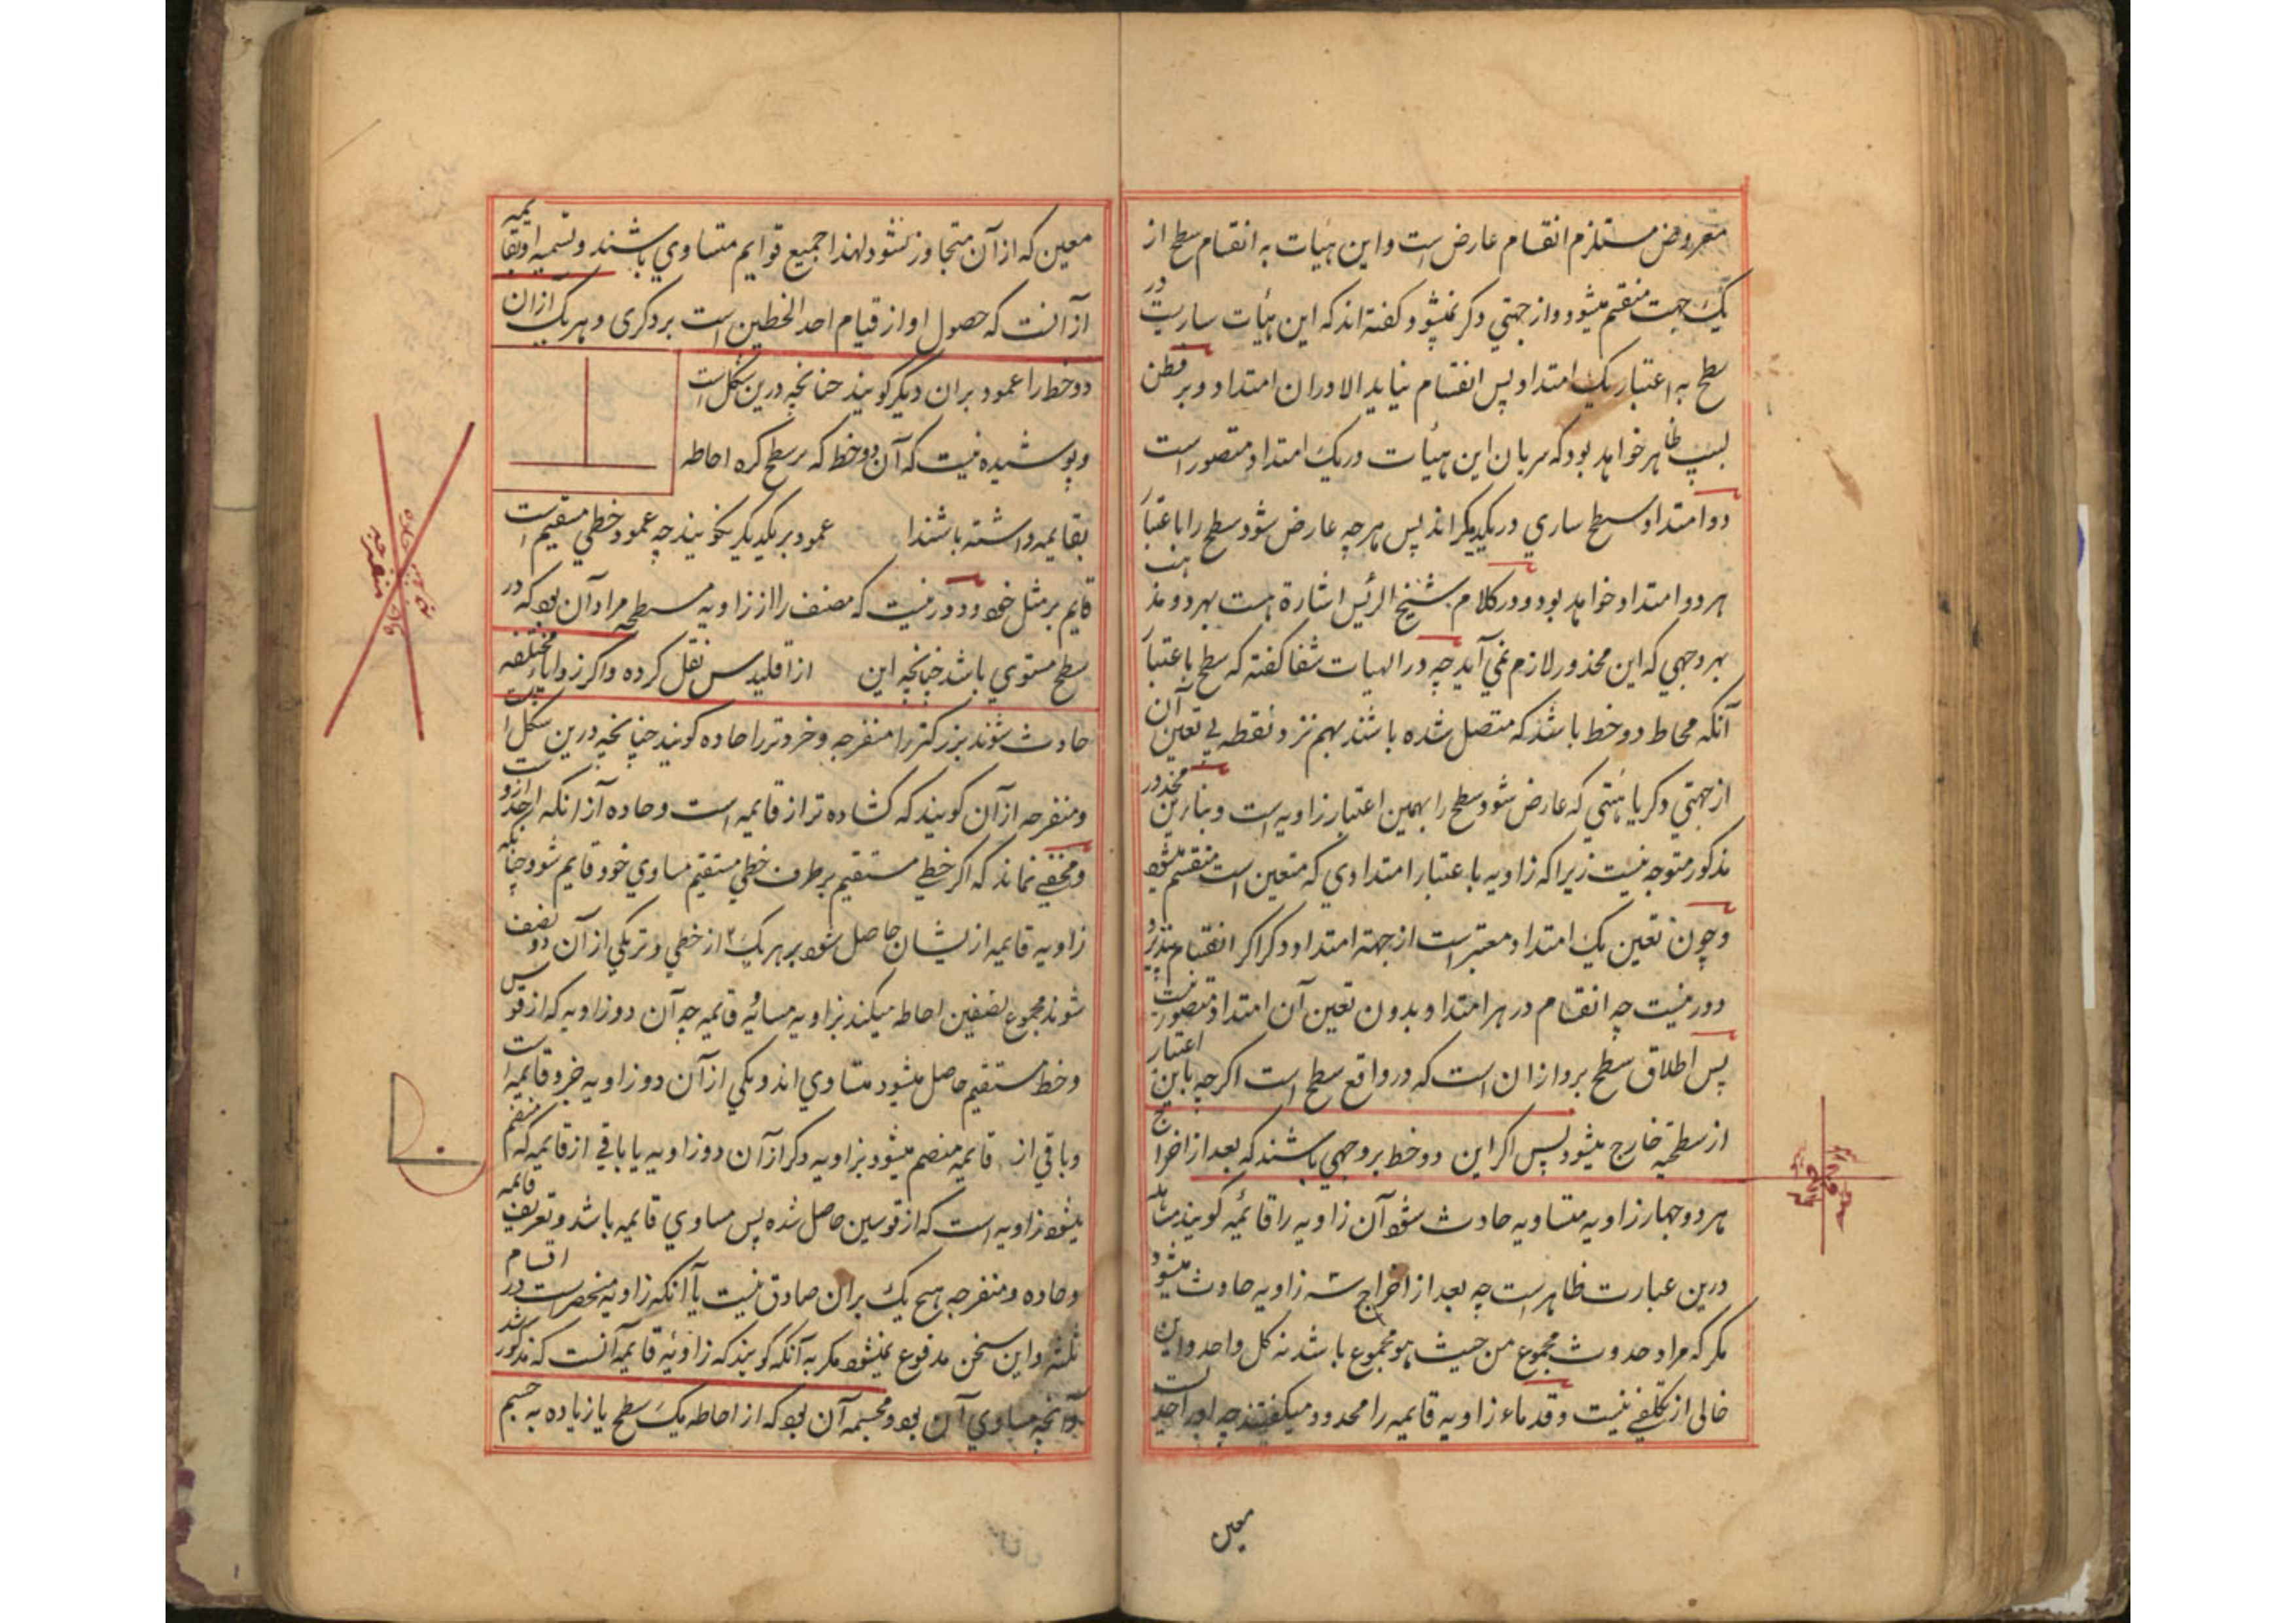 معروض مستلزم انقسام عارض است و این هیأت به انقسام سطح از
یک جهت منقسم میشود و از جهتی دکر نمیشود و کفته اند که این هیأت ساریست در
سطح به اعتبار یک امتداد پس انقسام نیابد الا در ان امتداد و بر فطن
لبیب ظاهر خواهد بود که سریان این هیأت در یک امتداد متصور است
دو امتداد سطح ساری در یکدیکر اند پس هر چه عارض شود سطح را باعتبار
هر دو امتداد خواهد بود و در کلام شیخ الرئیس اشارة هست بهر دو مذهب
بهر وجهی که این محذور لازم نمی آید چه در الهیات شفا کفته که سطح باعتبار
آنکه محاط دو خط باشد که متصل شده باشند بهم نزد نقطه بی تعین آن
از جهتی دکر یا هیئتی که عارض شود سطح را بهمین اعتبار زاویه است و بنابرین محذور
مذکور متوجه نیست زیرا که زاویه باعتبار امتدادی که متعین است منقسم میشود
و چون تعین یک امتداد معتبر است از جهة امتداد دکر اکر انقسام نپذیرد
دور نیست چه انقسام در هر امتداد بدون تعین آن امتداد متصور نیست
پس اطلاق سطح برو ازان است که در واقع سطح است اکرچه باین اعتبار
از سطحیه خارج میشود پس اکر این دو خط بر وجهی باشند که بعد از اخراج
هر دو چهار زاویه متساویه حادث شود آن زاویه را قائمه کویند
درین عبارت ظاهر است چه بعد از اخراج سه زاویه حادث میشود
مکر که مراد حدوث مجموع من حیث هو مجموع باشد نه کل واحد و این
خالی از تکلفی نیست و قدماء زاویه قایمه را محدود میکفتند چه او را حدیست
معین
معین که از آن متجاوز نشود لهذا جمیع قوایم متساوی باشند و تسمیه او بقایمه
از آنست که حصول او از قیام احد الخطین است بر دکری و هر یک ازان
دو خط را عمود بران دیکر کویند چنانچه درین شکل است
و پوشیده نیست که آن دو خط که بر سطح کره احاطه
بقایمه داشته باشند ا عمود بر یکدیکر نکویند چه عمود خطی مستقیم است
قایم بر مثل خود و دور نیست که مصنف را از زاویه مسطحه مراد آن بود که در
سطح مستوی باشد چنانچه این از اقلیدس نقل کرده و اکر زوایای مختلفه
حادث شوند بزرکتر را منفرجه و خردتر را حاده کویند چنانچه درین شکل است
و منفرجه از آن کویند که کشاده تر از قایمه است و حاده از آنکه احد ازو است
و مخفی نماند که اکر خطی مستقیم بر طرف خطی مستقیم مساوی خود قایم شود چنانکه
زاویه قایمه از ایشان حاصل شود بر هر یک ازخطی وتر یکی از آن دو نصف
شوند مجموع نصفین احاطه میکند بزاویه مساویه قایمه چه آن دو زاویه که از قوس
و خط مستقیم حاصل میشود متساوی اند و یکی از آن دو زاویه جزو قایمه است
و باقی از قایمه منضم میشود بزاویه دکر از آن دو زاویه یا باقی از قایمه که منضم
میشود زاویه است که از قوسین حاصل شده پس مساوی قایمه باشد و تعریف قایمه
و حاده و منفرجه هیچ یک بران صادق نیست با آنکه زاویه منحصر است در اقسام
ثلثه و این سخن مدفوع نمیشود مکر به آنکه کویند که زاویه قایمه آنست که مذکور شد
و آنچه مساوی آن بود و مجسمه آن بود که از احاطه یک سطح یا زیاده به جسم
حاده
منفرجه